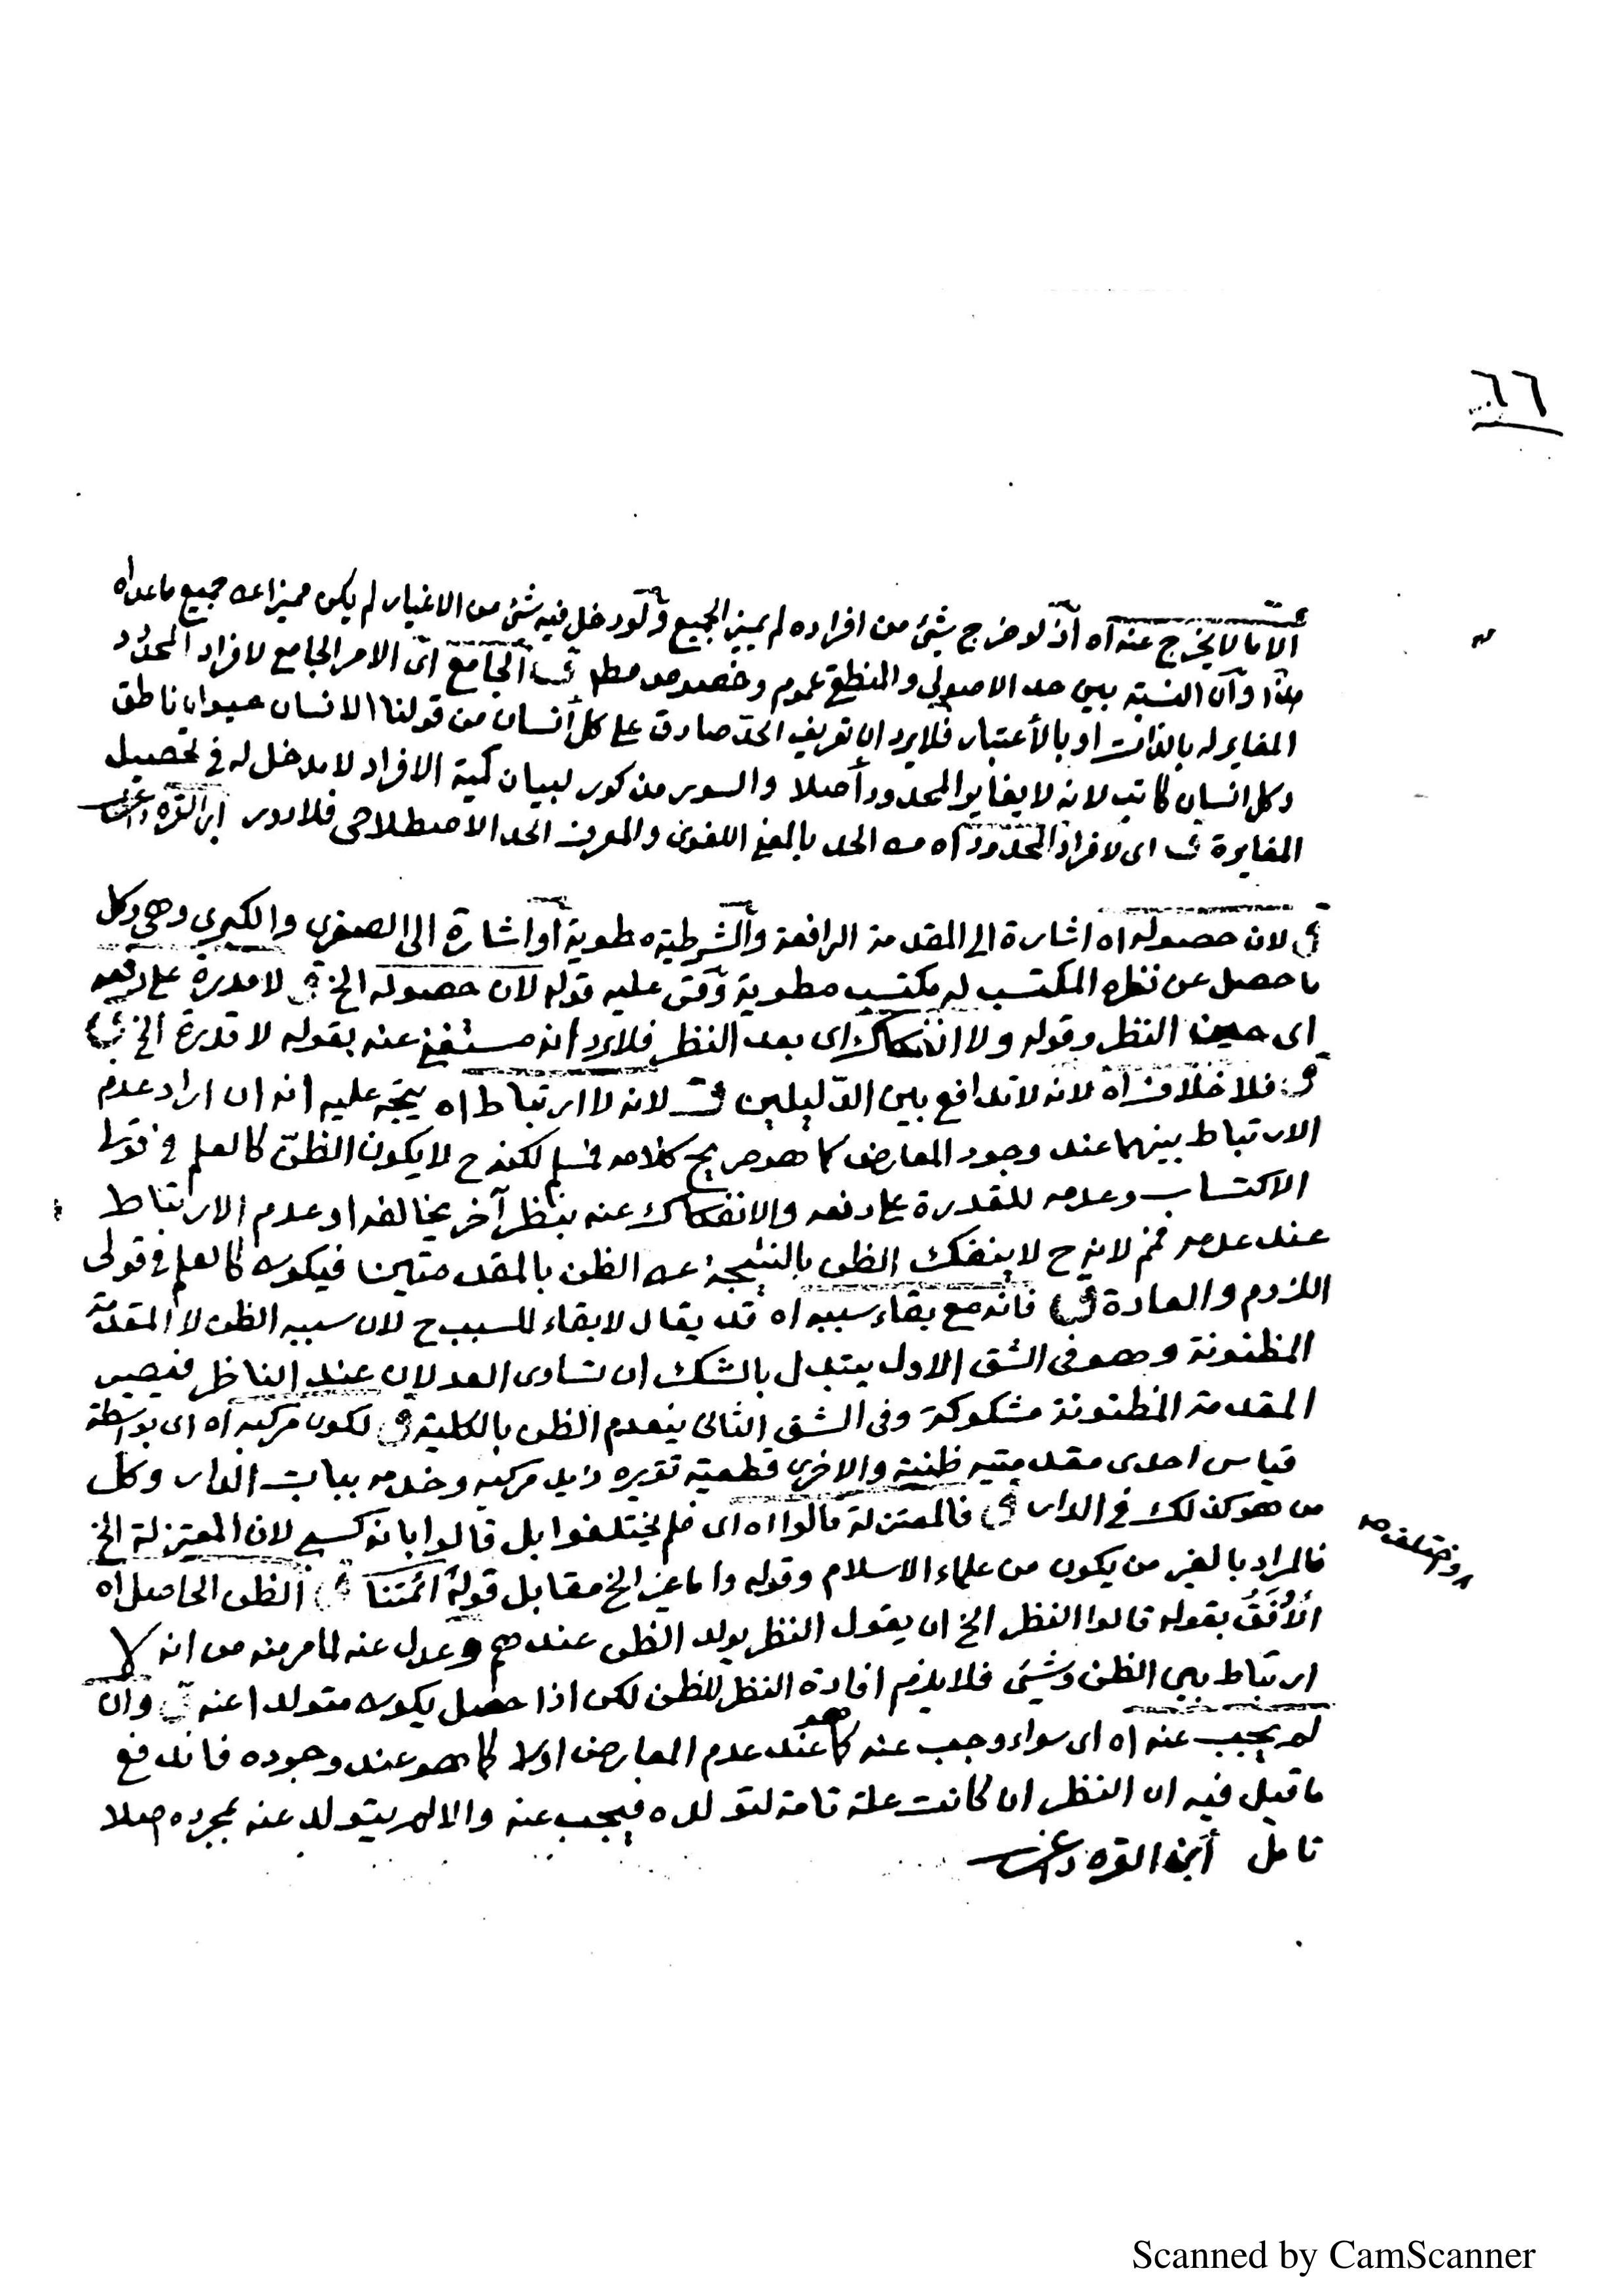 ٦٦
الا ما لا يخرج عنه اه اذ لو خرج شئ من افراده لم يميز الجميع ولو دخل فيه شئ من الاغيار لم يكن مميزا عن جميع ما عداه
وان النسبة بين حد الاصولى والمنطقى عموم وخصوص الجامع اى الامر الجامع لافراد المحدود
المغاير له بالذات او بالاعتبار فلا يرد ان تعريف الحد صادق على كل انسان من قولنا الانسان حيوان ناطق
وكل انسان كاتب لانه لا يغاير المحدود أصلا والسور مذكور لبيان كمية الافراد لا مدخل له فى تحصيل
المغايرة اى لافراد المحدود اه الحد بالمعنى اللغوى والمعرف الحد الاصطلاحى فلا دور ابن القره داغى
لان حصوله اه اشارة الى المقدمة الرافعة والشرطية مطوية أو اشارة الى الصغرى والكبرى وهى وكل
ما حصل عن نظر المكتسب له مكتسب مطوية وقس عليه قوله لان حصوله الخ لا قدرة على دفعه
اى حين النظر وقوله ولا انفكاك اى بعد النظر فلا يرد انه مستغنى عنه بقوله لا قدرة الخ
فلا خلاف اه لانه لا تدافع بين الدليلين لانه لا ارتباط اه يتجه عليه انه ان اراد عدم
الارتباط بينهما عند وجود المعارض كما هو صريح كلامه فمسلم لكنه ح لا يكون الظن كالعلم فى قولى
الاكتساب وعدمه للقدرة على دفعه والانفكاك عنه بنظر آخر يخالفه او عدم الارتباط
عند عدمه فمنع لانه ح لا ينفك الظن بالنتيجة عن الظن بالمقدمتين فيكون كالعلم فى قولى
اللزوم والعادة فانه مع بقاء سببه اه قد يقال لا بقاء للسبب ح لان سببه الظن لا المقدمة
المظنونة وهو فى الشق الاول يتبدل بالشك ان تساوى العدلان عند الناظر فيصير
المقدمة المظنونة مشكوكة وفى الشق الثانى ينعدم الظن بالكلية لكون مركبه اه اى بواسطة
قياس احدى مقدمتيه ظنية والاخرى قطعية تقريره زيد مركبه وخدمه بباب الدار وكل
من هو كذلك فى الدار فالمعتزلة قالوا اه اى فلم يختلفوا بل قالوا بانه كسبى لان المعتزلة الخ
فالمراد بالغير من يكون من علماء الاسلام وقوله واما غير الخ مقابل قوله ائمتنا الظن الحاصل اه
الأوفق بقوله قالوا النظر الخ ان يقول النظر يولد الظن عندهم وعدل عنه لما مر منه من انه لا
ارتباط بين الظن وشئ فلا يلزم افادة النظر للظن لكن اذا حصل يكون متولدا عنه وان
لم يجب عنه اه اى سواء وجب عنه كما هو عند عدم المعارض اولا كما هو عند وجوده فاندفع
ما قيل فيه ان النظر ان كانت علة تامة لتولده فيجب عنه والا لم يتولد عنه بمجرده اصلا
تامل ابن القره داغى
Scanned by CamScanner